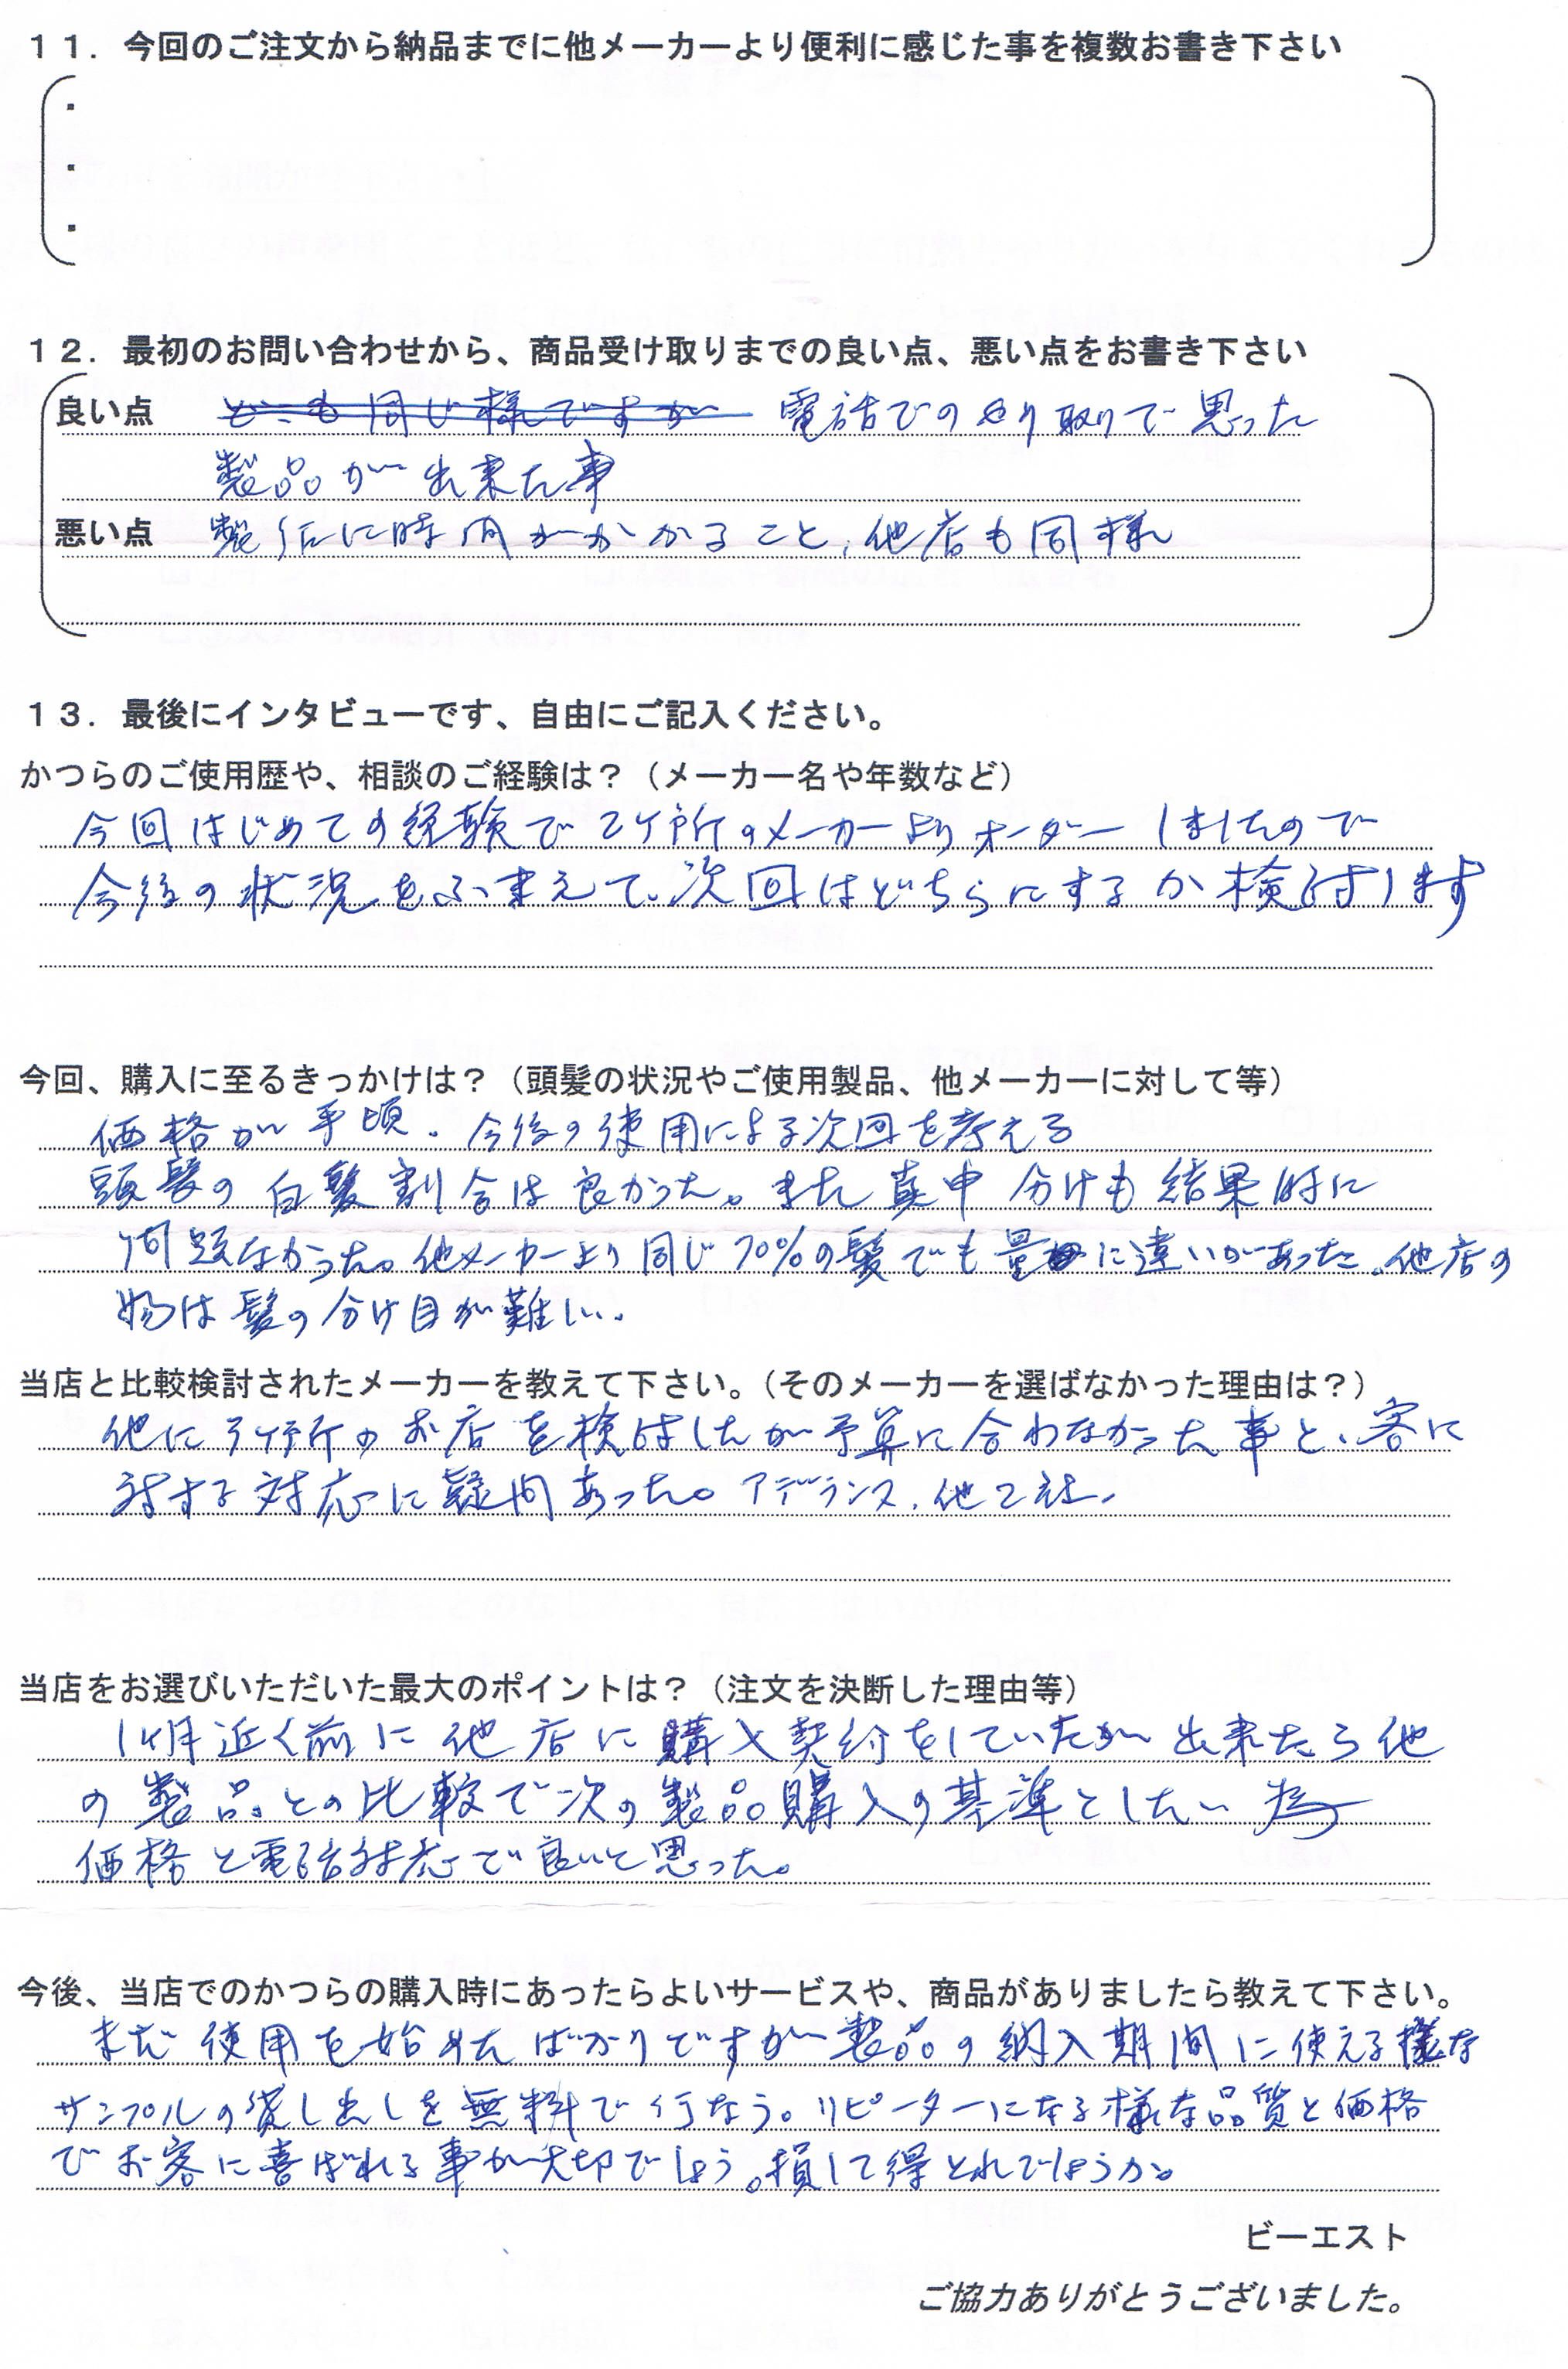 11．今回のご注文から納品までに他メーカーより便利に感じた事を複数お書き下さい
・
・
・
12．最初のお問い合わせから、商品受け取りまでの良い点、悪い点をお書き下さい
良い点 どこも同じ様ですが 電話でのやり取りで思った
製品が出来た事
悪い点 製作に時間がかかること、他店も同様
13．最後にインタビューです、自由にご記入ください。
かつらのご使用歴や、相談のご経験は？（メーカー名や年数など）
今回はじめての経験で2ケ所のメーカーよりオーダーしましたので
今後の状況をふまえて、次回はどちらにするか検討します
今回、購入に至るきっかけは？（頭髪の状況やご使用製品、他メーカーに対して等）
価格が手頃．今後の使用による次回を考える
頭髪の白髪割合は良かった。また真中分けも結果的に
問題なかった。他メーカーより同じ70%の髪でも量に違いがあった．他店の
物は髪の分け目が難しい．
当店と比較検討されたメーカーを教えて下さい。（そのメーカーを選ばなかった理由は？）
他に3ケ所のお店を検討したが予算に合わなかった事と、客に
対する対応に疑問あった。アデランス、他2社、
当店をお選びいただいた最大のポイントは？（注文を決断した理由等）
1ケ月近く前に他店に購入契約をしていたが出来たら他
の製品との比較で次の製品購入の基準としたい為
価格と電話対応で良いと思った。
今後、当店でのかつらの購入時にあったらよいサービスや、商品がありましたら教えて下さい。
まだ使用を始めたばかりですが製品の納入期間に使える様な
サンプルの貸し出しを無料で行なう。リピーターになる様な品質と価格
でお客に喜ばれる事が大切でしょう。損して得とれでしょうか。
ビーエスト
ご協力ありがとうございました。